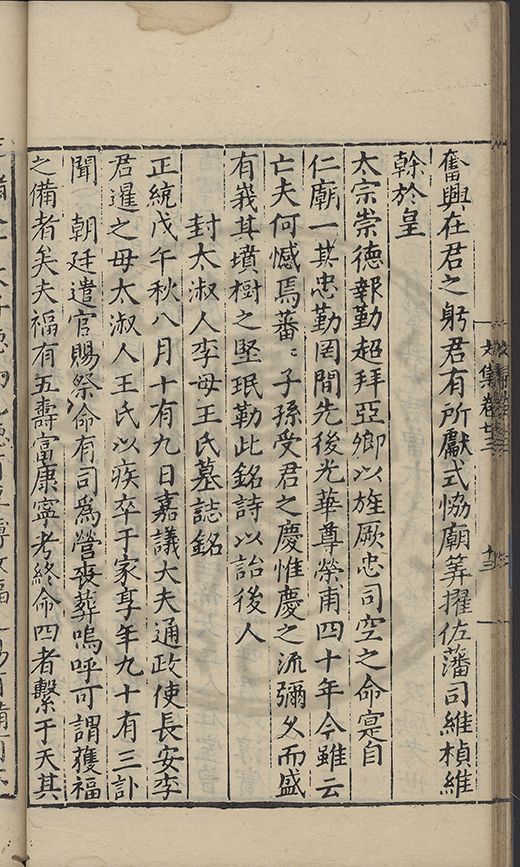 奮興在君之躬君有所獻式恊廟筭擢佐藩司維楨維
幹於皇
太宗崇德報勤超拜亞卿以旌厥忠司空之命寔自
仁廟一其忠勤罔間先後光華尊榮甫四十年今雖云
亡夫何憾焉蕃〻子孫受君之慶惟慶之流彌久而盛
有峩其墳樹之堅珉勒此銘詩以詒後人
封太淑人李母王氏墓誌銘
正統戊午秋八月十有九日嘉議大夫通政使長安李
君暹之母太淑人王氏以疾卒于家享年九十有三訃
聞　朝廷遣官賜祭命有司爲營喪葬嗚呼可謂獲福
之備者矣夫福有五壽富康寧考終命四者繫于天其
文集卷廿三
十三